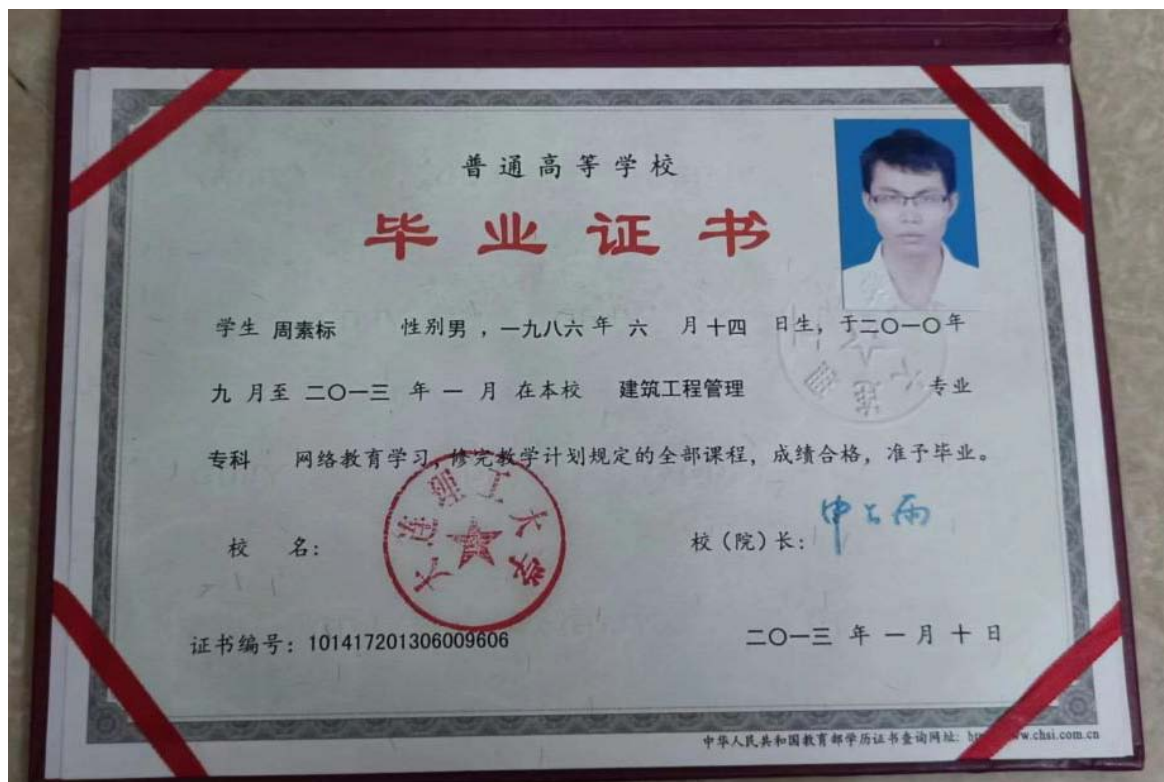 普通高等学校
毕业证书
学生 周素标 性别男，一九八六年 六 月十四 日生，于二〇一〇年
九 月至 二〇一三 年 一 月 在本校 建筑工程管理 专业
专科 网络教育学习，修完教学计划规定的全部课程，成绩合格，准予毕业。
大连理工大学
校 名： 校（院）长：
证书编号：101417201306009606 二〇一三 年 一 月 十 日
中华人民共和国教育部学历证书查询网址: w.chsi.com.cn